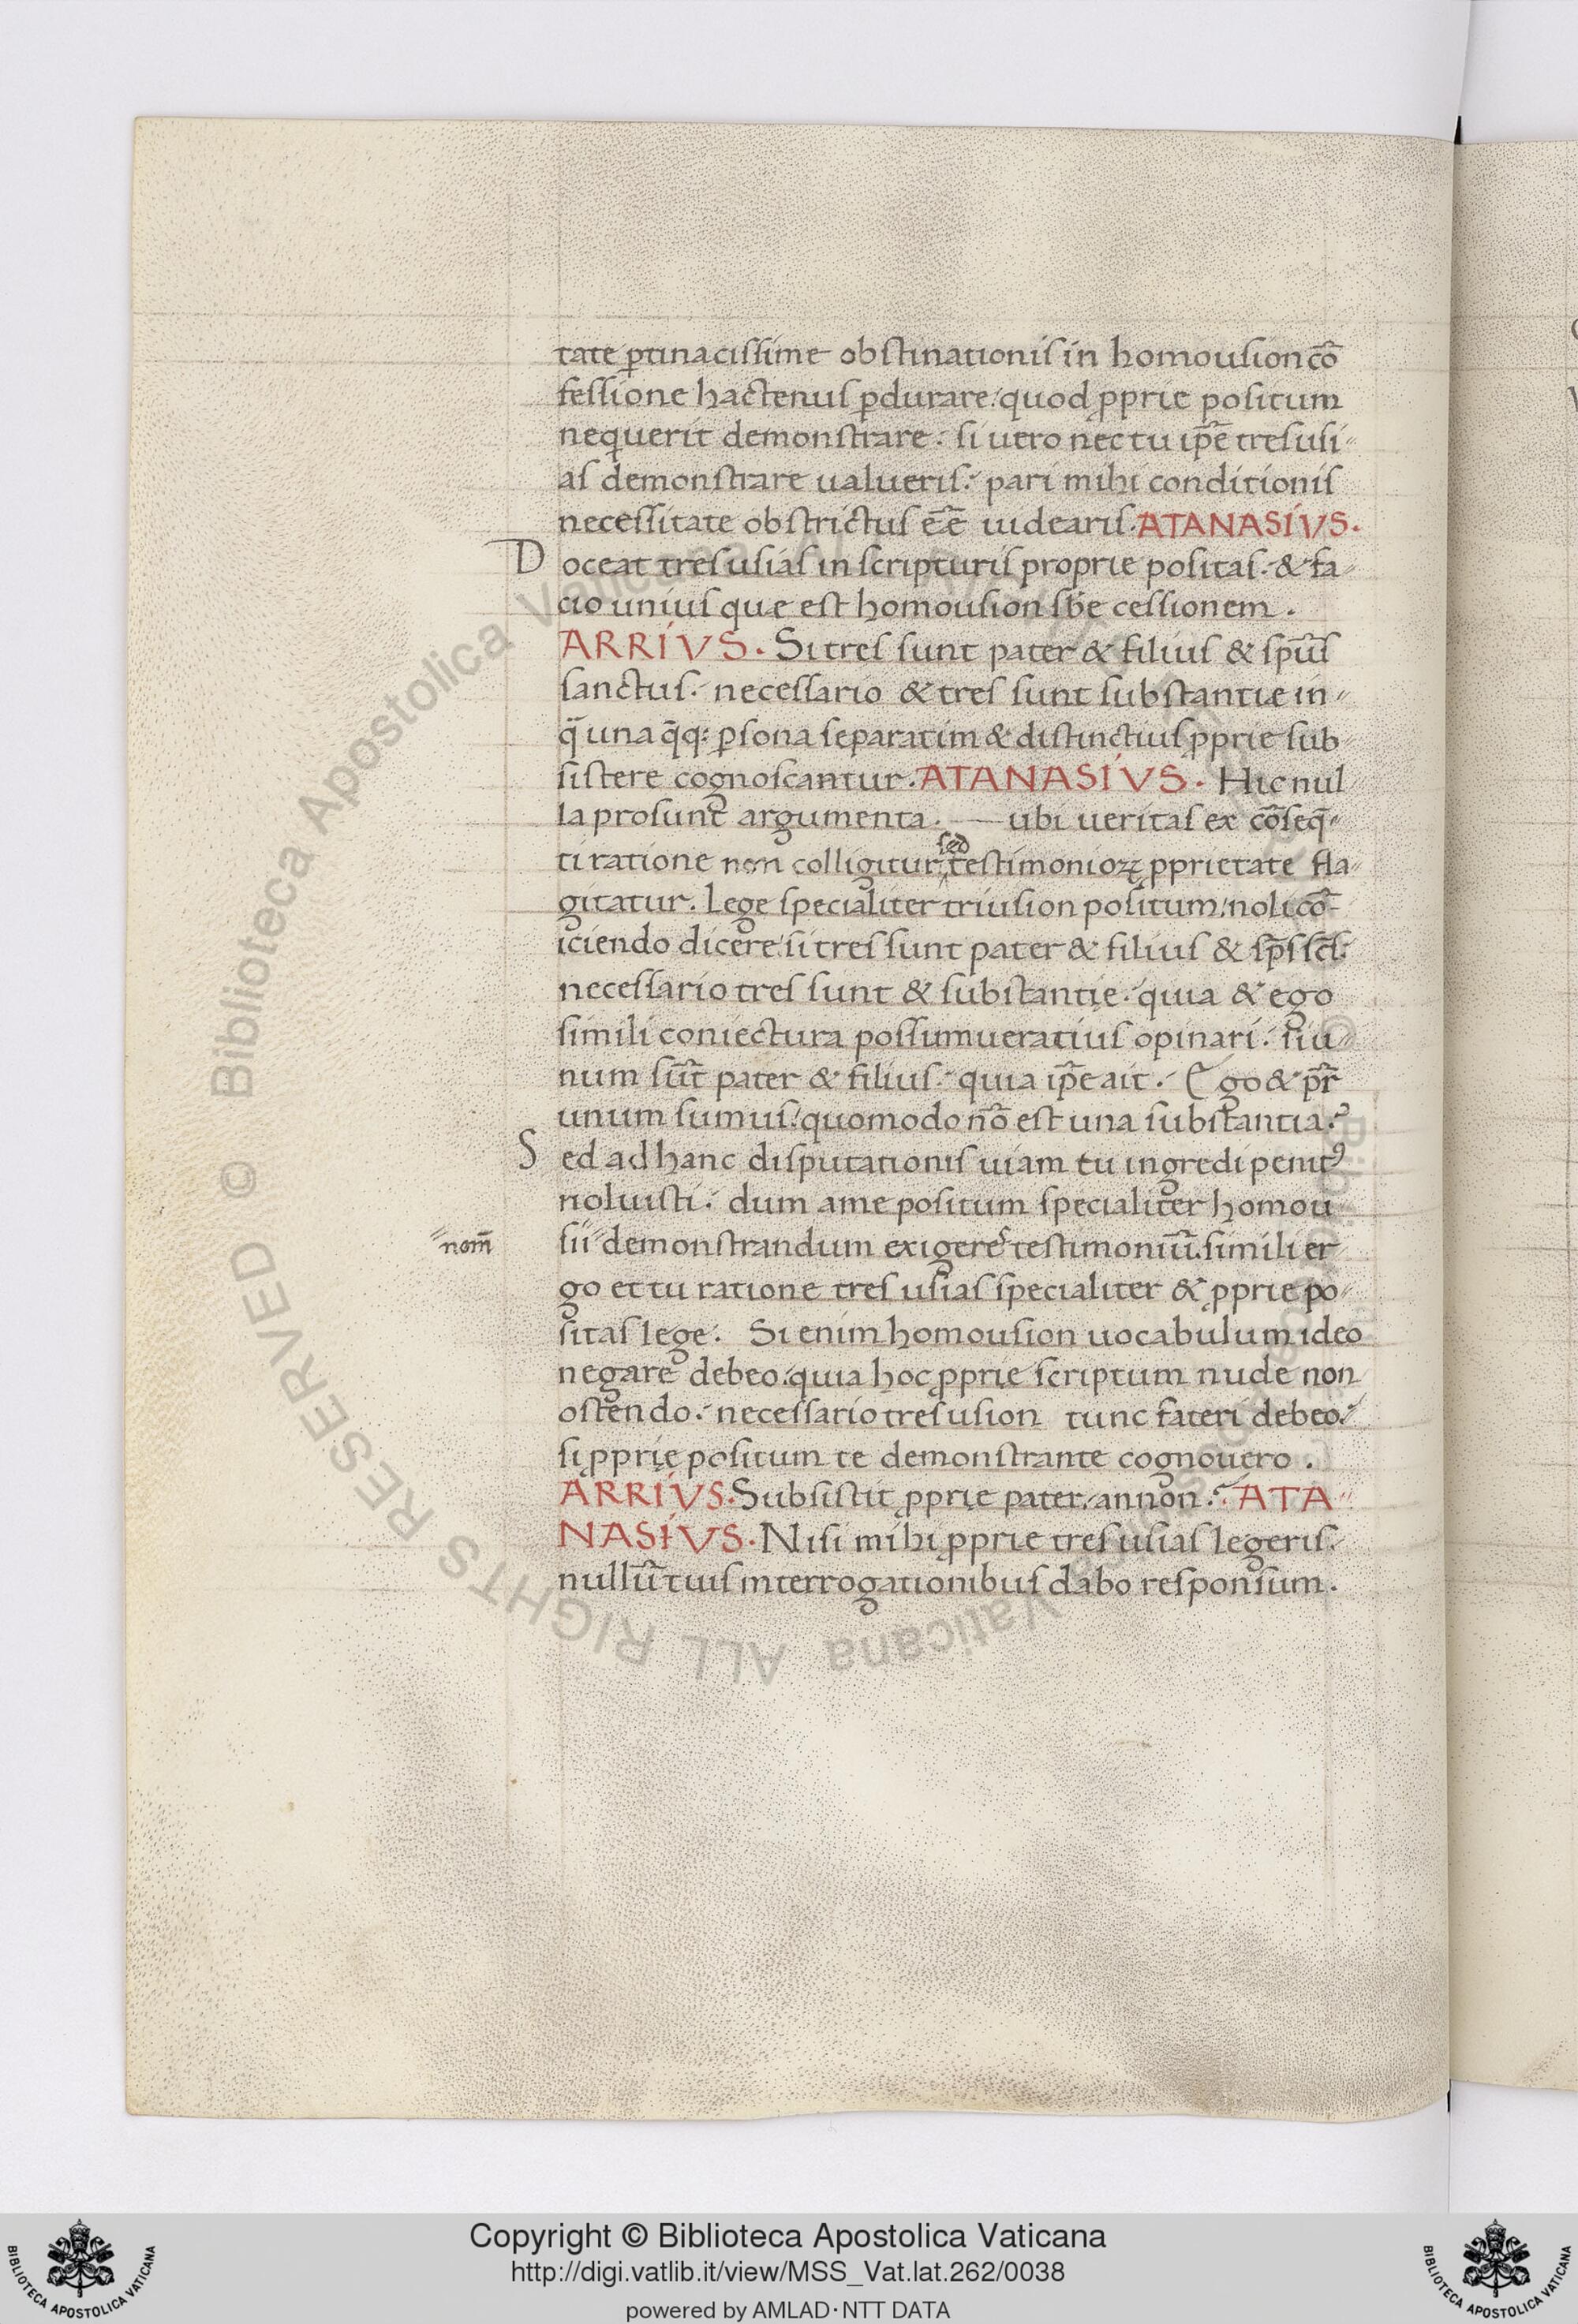 tate ꝑtinacissime obstinationis in homousion cō
fessione hactenus ꝑdurare. quod ꝓprie positum
nequerit demonstrare. si uero nec tu ip̄e tres usi-
as demonstrare ualueris. pari mihi conditionis
necessitate obstrictus eē̄ uidearis. ATANASIVS.
Doceat tres usias in scripturis proprie positas. & fa-
cio unius que est homousion sb̄e cessionem.
ARRIVS. Si tres sunt pater & filius & sp̄us
sanctus. necessario & tres sunt substantiæ in-
q̄ una q̄q: ꝑsona separatim & distinctius ꝓprie sub-
sistere cognoscantur. ATANASIVS. Hic nul
la prosunt argumenta. — ubi ueritas ex cōseq̄-
ti ratione non colligitur, sed testimonioꝝ ꝓprietate fla-
gitatur. Lege specialiter triusion positum, noli cō-
iciendo dicere, si tres sunt pater & filius & sp̄s sc̄s.
necessario tres sunt & substantię. quia & ego
simili coniectura possum ueratius opinari. si u-
num sūt pater & filius. quia ip̄e ait. Ego & pr̄
unum sumus. quomodo nō est una substantia?
Sed ad hanc disputationis uiam tu ingredi penitꝰ
noluisti. dum a me positum specialiter homou
nom̄
sii demonstrandum exigeres testimoniū. simili er-
go et tu ratione tres usias specialiter & ꝓprie po-
sitas lege. Si enim homousion uocabulum ideo
negare debeo. quia hoc ꝓprie scriptum nude non
ostendo. necessario tres usion tunc fateri debeo.
si ꝓprię positum te demonstrante cognouero.
ARRIVS. Subsistit ꝓprię pater. annon? ATA-
NASIVS. Nisi mihi ꝓprie tres usias legeris.
nullū tuis interrogationibus dabo responsum.
Copyright © Biblioteca Apostolica Vaticana
http://digi.vatlib.it/view/MSS_Vat.lat.262/0038
powered by AMLAD·NTT DATA